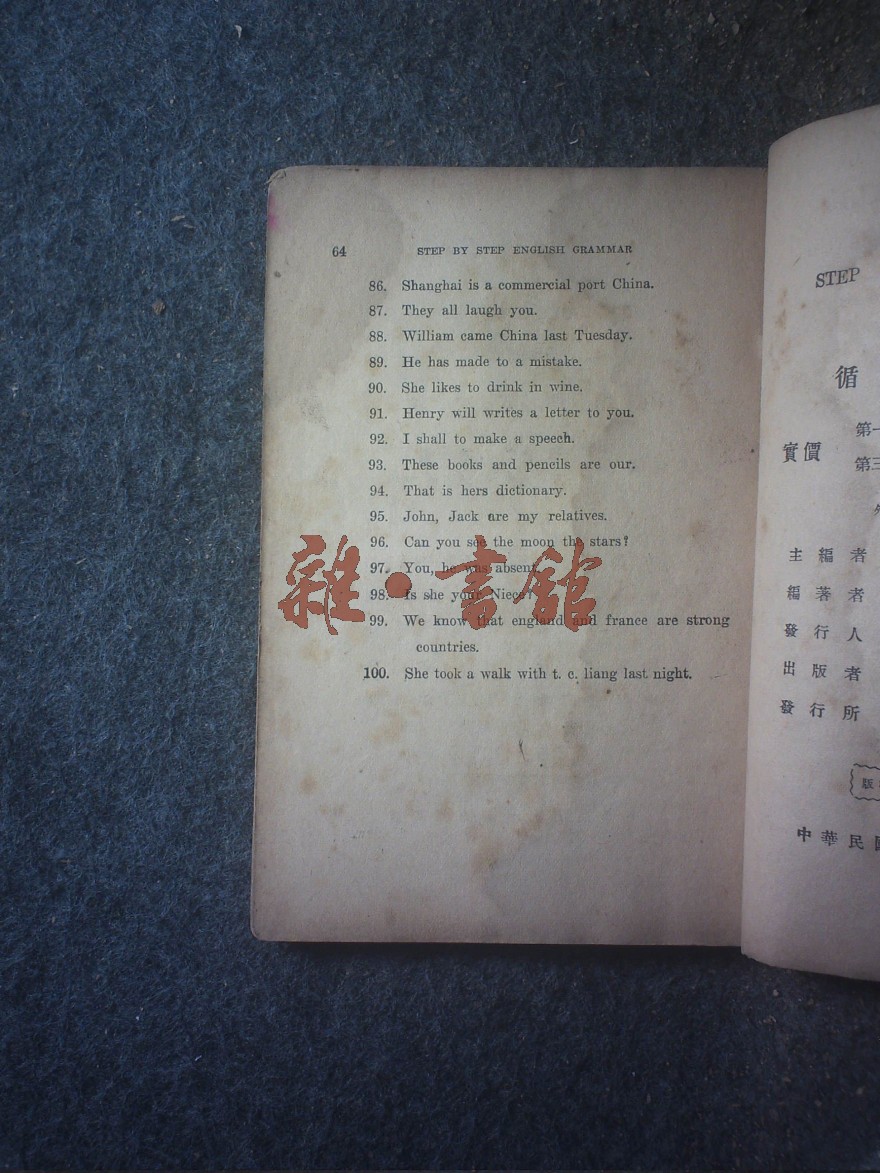 64 STEP BY STEP ENGLISH GRAMMAR
86. Shanghai is a commercial port China.
87. They all laugh you.
88. William came China last Tuesday.
89. He has made to a mistake.
90. She likes to drink in wine.
91. Henry will writes a letter to you.
92. I shall to make a speech.
93. These books and pencils are our.
94. That is hers dictionary.
95. John, Jack are my relatives.
96. Can you see the moon the stars?
97. You, he was absent.
98. Is she your Niece?
99. We know that england and france are strong
countries.
100. She took a walk with t. c. liang last night.
雜·書館
STEP
循
第一
實價
第三
主編者
編著者
發行人
出版者
發行所
版
中華民國